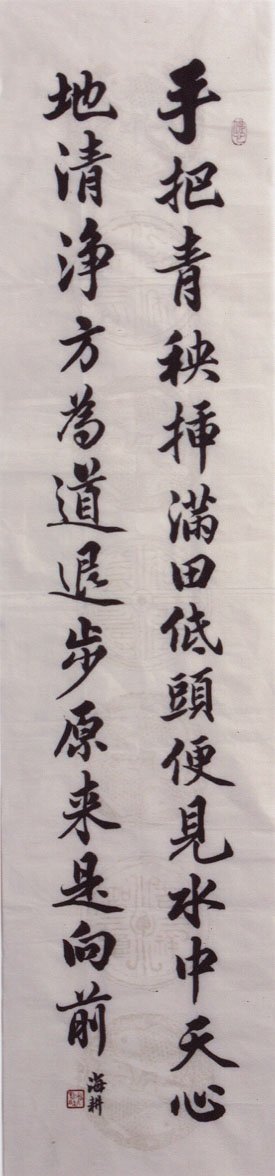 手把青秧插滿田低頭便見水中天心
地清淨方為道退步原来是向前
海耕